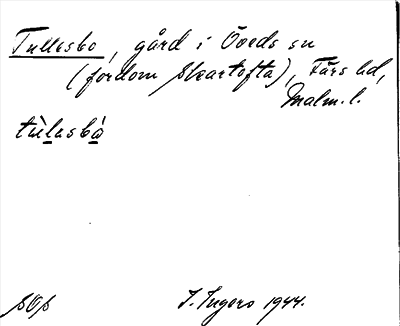 Tullesbo, gård i Öveds sn
(fordom Skartofta), Färs hd,
Malm. l.
tùlasbó
J. Ingers 1944.